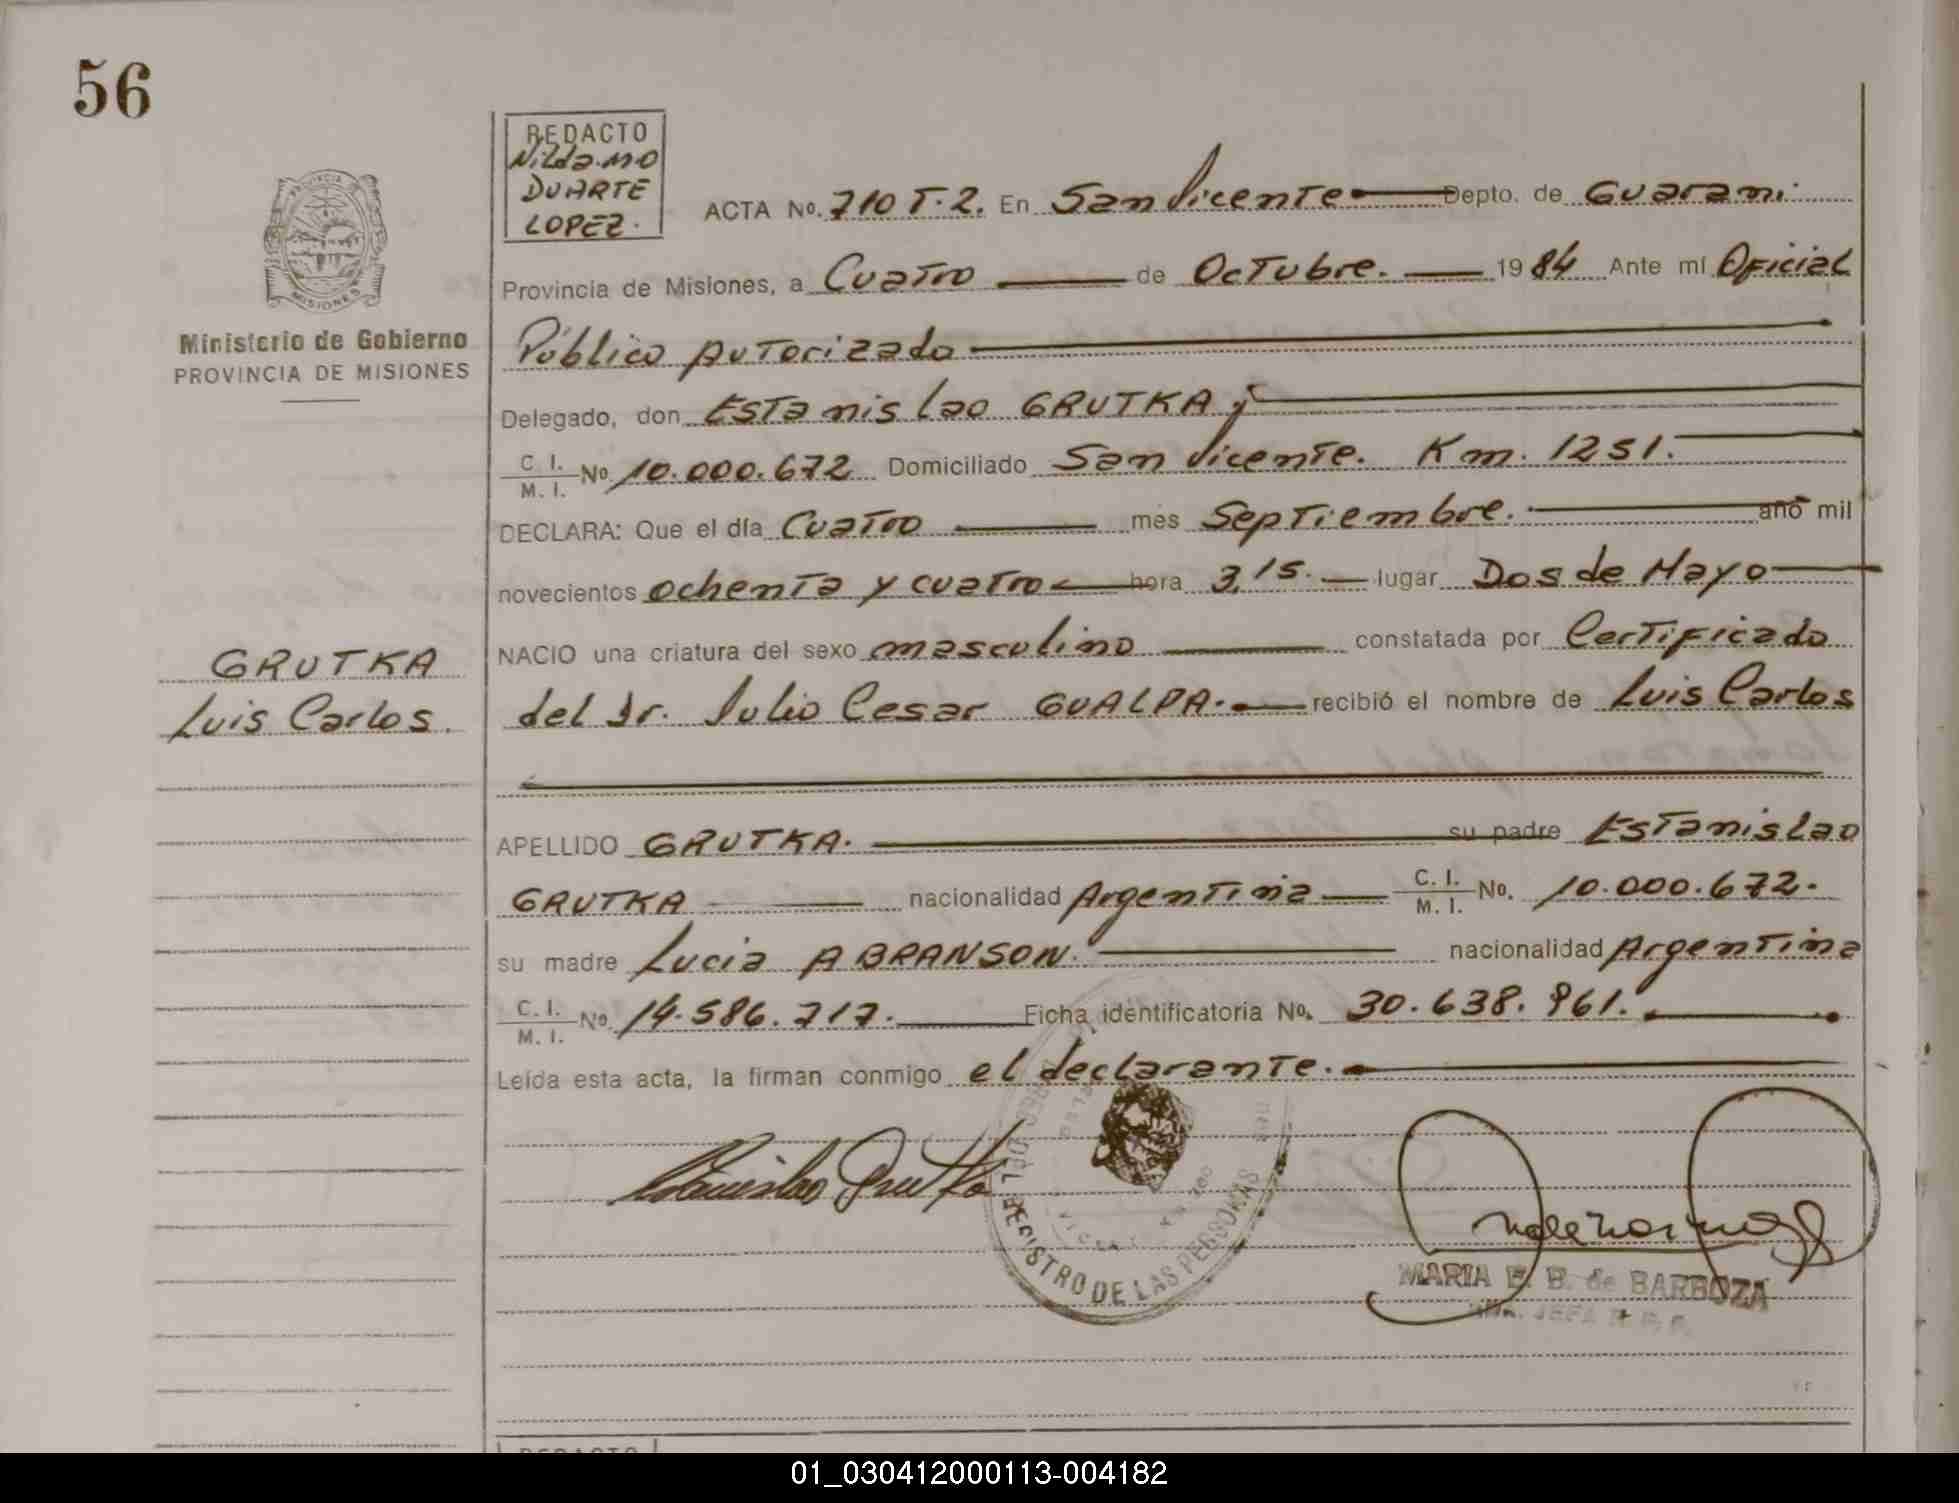 56
REDACTO
Nilda MO
DUARTE
LOPEZ.
PROVINCIA DE
MISIONES
Ministerio de Gobierno
PROVINCIA DE MISIONES
ACTA No. 710 T. 2. En San Vicente Depto. de Guarani.
Provincia de Misiones, a Cuatro de Octubre. 19 84 Ante mí Oficial
Público Autorizado
Delegado, don Estanislao GRUTKA
C. I.
M. I. No. 10.000.672 Domiciliado San Vicente. Km. 1251.
DECLARA: Que el día Cuatro mes Septiembre. año mil
novecientos ochenta y cuatro hora 3,15. lugar Dos de Mayo
NACIO una criatura del sexo masculino constatada por Certificado
del Dr. Julio Cesar GUALPA. recibió el nombre de Luis Carlos
GRUTKA
Luis Carlos.
APELLIDO GRUTKA. su padre Estanislao
GRUTKA nacionalidad Argentina C. I.
M. I. No. 10.000.672.
su madre Lucia ABRANSON. nacionalidad Argentina
C. I.
M. I. No. 14.586.717. Ficha identificatoria No. 30.638.961.
Leída esta acta, la firman conmigo el declarante.
Estanislao Grutka
REGISTRO DE LAS PERSONAS
MARIA E. B. de BARBOZA
JEFA R. P.
REDACTO
01_030412000113-004182